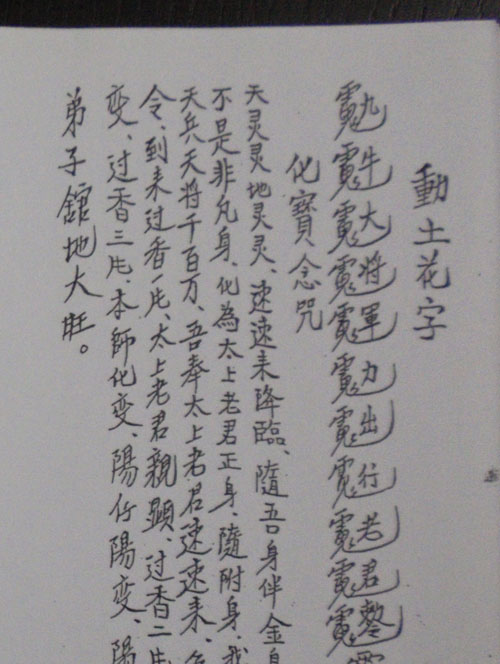 動土花字
九牛大将軍力出行老君
化寶、念咒
天灵灵地灵灵、速速来降臨、隨吾身伴金身
不是非凡身、化為太上老君正身、隨附身、我
天兵天将千百万、吾奉太上老君速速来、
令、到来过香一片、太上老君親顯、过香二片
变、过香三片、本師化变、陽仃陽变、陽
弟子舘地大旺。